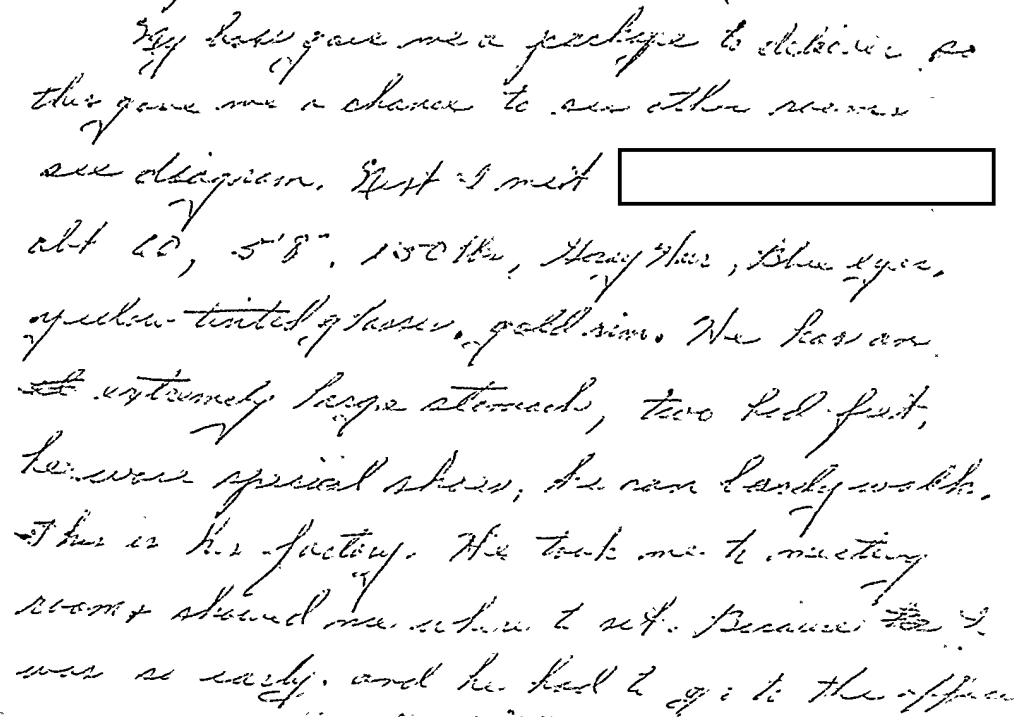 My boss gave me a package to deliver so
this gave me a chance to see other rooms
see diagram. Next I meet
abt 60, 5'8", 150 lbs, Gray Hair, Blue eyes,
yellow tinted glasses, gold rim. He has an
extremely large stomach, two bad feet,
he wore special shoes, he can hardly walk.
This is his factory. He took me to meeting
room & showed me where to sit. Because I
was so early. and he had to go to the office